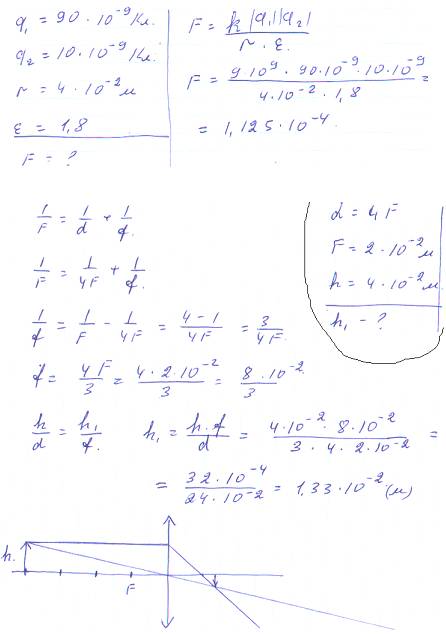 q₁ = 90 · 10⁻⁹ Кл.
q₂ = 10 · 10⁻⁹ Кл.
r = 4 · 10⁻² м
ε = 1,8
F = ?
F = k |q₁||q₂| / r · ε.
F = 9·10⁹ · 90·10⁻⁹ · 10·10⁻⁹ / 4·10⁻² · 1,8 =
= 1,125 · 10⁻⁴.
d = 4F
F = 2 · 10⁻² м
h = 4 · 10⁻² м.
h₁ - ?
1/F = 1/d + 1/f.
1/F = 1/4F + 1/f.
1/f = 1/F - 1/4F = 4-1/4F = 3/4F.
f = 4F/3 = 4 · 2 · 10⁻²/3 = 8 · 10⁻²/3
h/d = h₁/f. h₁ = h · f/d = 4·10⁻² · 8 · 10⁻² / 3 · 4 · 2 · 10⁻² =
= 32 · 10⁻⁴ / 24 · 10⁻² = 1,33 · 10⁻² (м)
h.
F